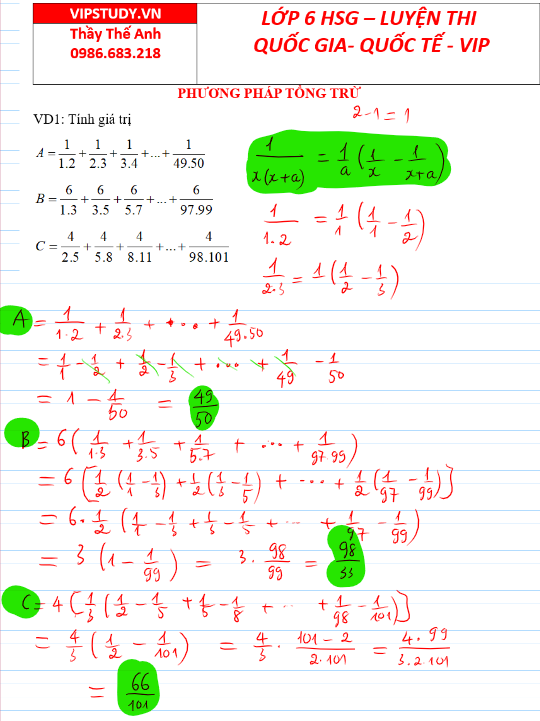 VIPSTUDY.VN
Thầy Thế Anh
0986.683.218
LỚP 6 HSG – LUYỆN THI
QUỐC GIA- QUỐC TẾ - VIP
PHƯƠNG PHÁP TỔNG TRỪ
VD1: Tính giá trị
2-1 = 1
A = 1/1.2 + 1/2.3 + 1/3.4 + ... + 1/49.50
B = 6/1.3 + 6/3.5 + 6/5.7 + ... + 6/97.99
C = 4/2.5 + 4/5.8 + 4/8.11 + ... + 4/98.101
1/x(x+a) = 1/a (1/x - 1/x+a)
1/1.2 = 1/1 (1/1 - 1/2)
1/2.3 = 1 (1/2 - 1/3)
A = 1/1.2 + 1/2.3 + ... + 1/49.50
= 1/1 - 1/2 + 1/2 - 1/3 + ... + 1/49 - 1/50
= 1 - 1/50 = 49/50
B = 6 (1/1.3 + 1/3.5 + 1/5.7 + ... + 1/97.99)
= 6 [1/2 (1/1 - 1/3) + 1/2 (1/3 - 1/5) + ... + 1/2 (1/97 - 1/99)]
= 6 . 1/2 (1/1 - 1/3 + 1/3 - 1/5 + ... + 1/97 - 1/99)
= 3 (1 - 1/99) = 3 . 98/99 = 98/33
C = 4 [1/3 (1/2 - 1/5 + 1/5 - 1/8 + ... + 1/98 - 1/101)]
= 4/3 (1/2 - 1/101) = 4/3 . 101-2/2.101 = 4.99/3.2.101
= 66/101